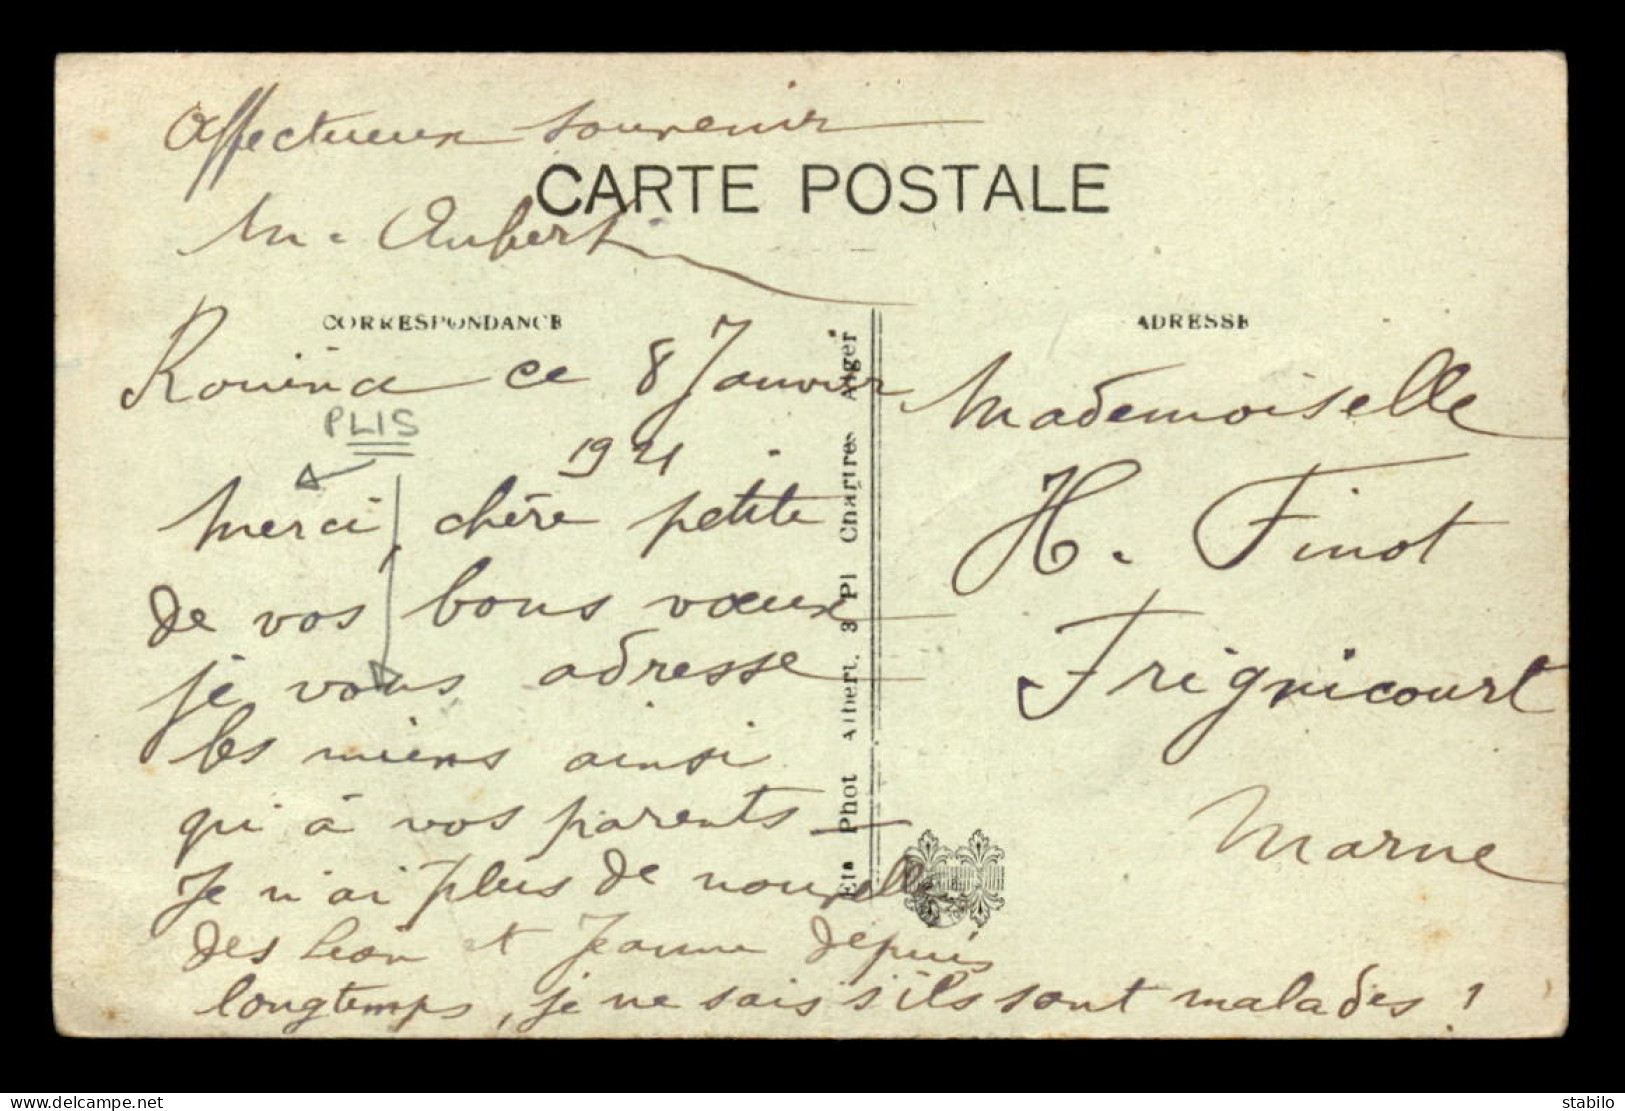 Affectueux souvenir
CARTE POSTALE
M. Aubert
CORRESPONDANCE
ADRESSE
Rouïna ce 8 Janvier
PLIS
1921
Merci, chère petite
de vos bons vœux
je vous adresse
les miens ainsi
qu'à vos parents
Je n'ai plus de nouvelle
des Léon et Jeanne depuis
longtemps, je ne sais s'ils sont malades !
Ets Phot Albert. 3 Pl Chartres Alger
Mademoiselle
H. Finot
Frignicourt
Marne
www.delcampe.net
stabilo